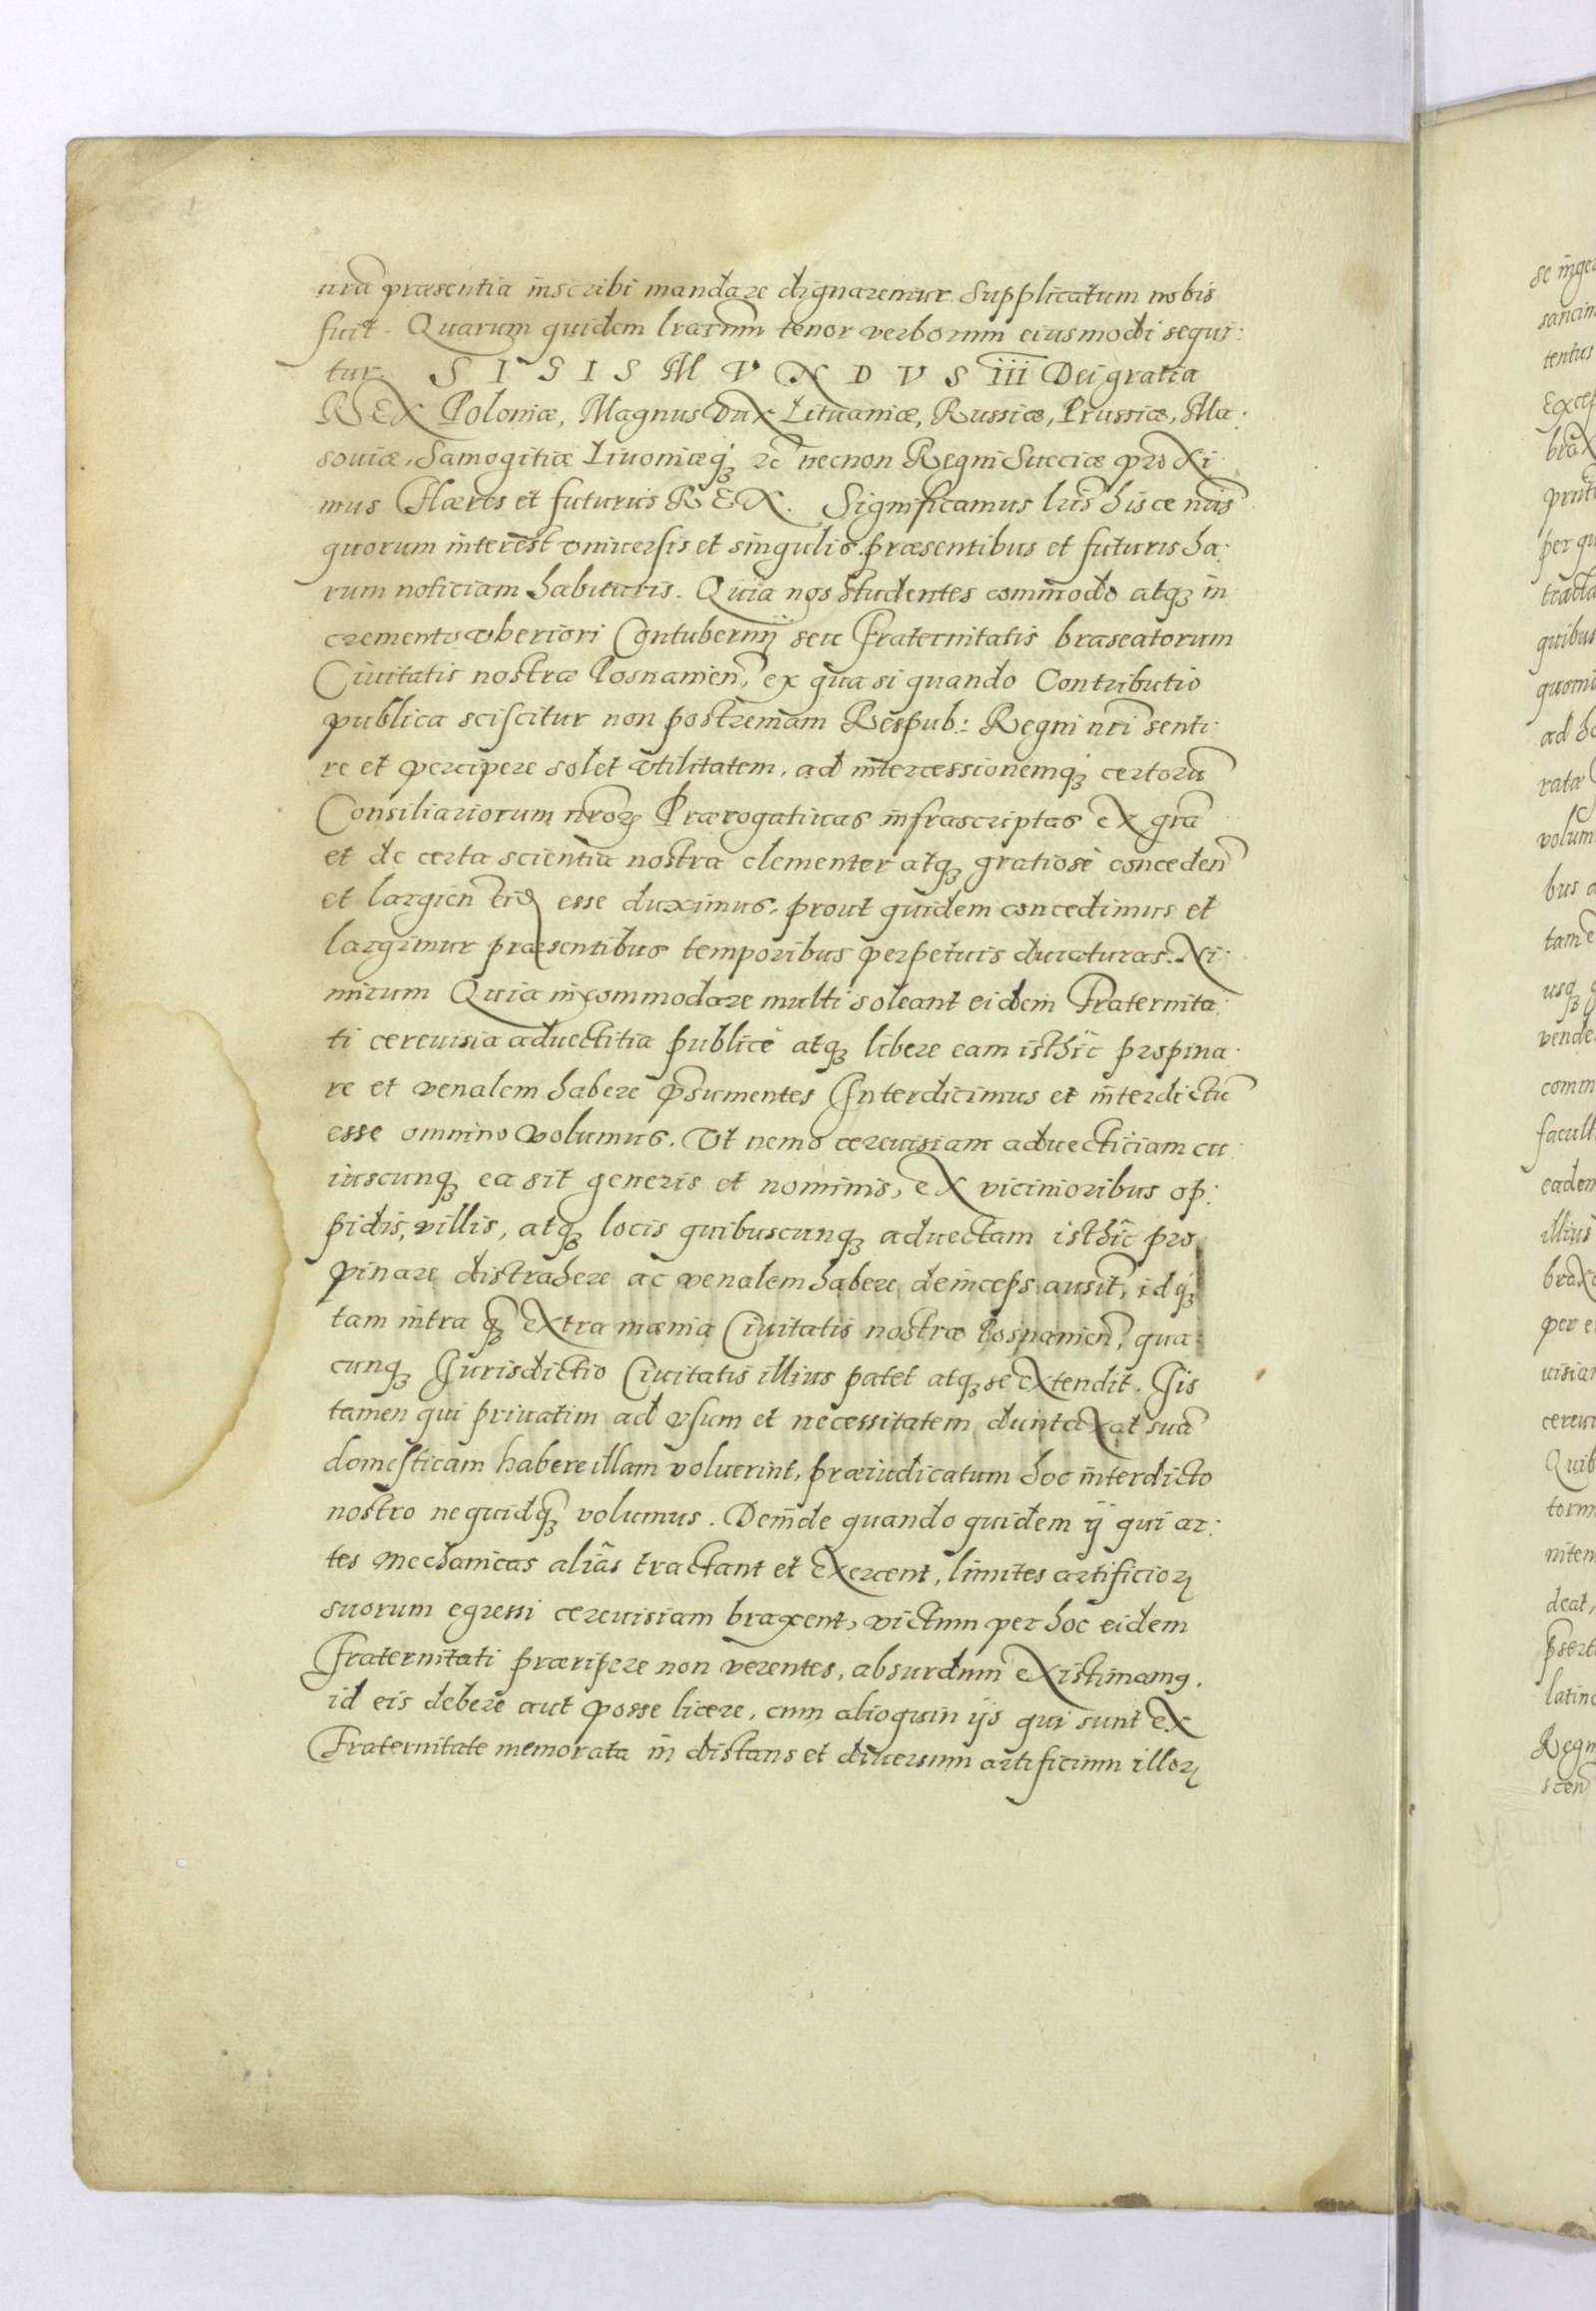 nrã præsentia inscribi mandare dignaremur. Supplicatum nobis
fuit. Quarum quidem lrarum tenor verborum eiusmodi sequi:
tur. S I S I S M V N D V S III Dei gratia
REX Poloniæ, Magnus Dux Lituaniæ, Russiæ, Prussiæ, Ma:
souiæ, Samogitiæ Liuoniæqꝫ ꝛc necnon Regni Sueciæ proxi
mus Hæres et futurus REX. Significamus lris hisce nris
quorum interest vniuersis et singulis præsentibus et futuris ha:
rum noticiam habituris. Quia nos studentes commodo atqꝫ in
cremento vberiori Contubernij seu Fraternitatis braseatorum
Ciuitatis nostræ Posnanien, ex qua si quando Contributio
publica sciscitur non postremam Respub: Regni nri senti:
re et percipere solet vtilitatem, ad intercessionemqꝫ certorũ
Consiliariorum nroꝝ Prærogatiuas infrascriptas ex grã
et de certa scientia nostra clementer atqꝫ gratiosè conceden̄
et largien̄ eid esse duximus, prout quidem concedimus et
largimur præsentibus temporibus perpetuis duraturas. Ni:
mirum Quia incommodare multi soleant eidem Fraternita:
ti cereuisia aduectitia publicè atqꝫ libere eam isthîc propina:
re et venalem habere p̃sumentes Interdicimus et interdictũ
esse omnino volumus. Vt nemo cereuisiam aduecticiam cu:
iuscunqꝫ ea sit generis et nominis, ex vicinioribus op:
pidis, villis, atqꝫ locis quibuscunqꝫ aduectam isthîc pro
pinare distrahere ac venalem habere deinceps ausit, idqꝫ
tam intra q̃ꝫ extra mœnia Ciuitatis nostræ Posnanien̄, qua:
cunqꝫ Jurisdictio Ciuitatis illius patet atqꝫ se extendit. Jis
tamen qui priuatim ad vsum et necessitatem duntaxat suã
domesticam habere illam voluerint, præiudicatum hoc interdicto
nostro nequidq̃ꝫ volumus. Deinde quando quidem ij qui ar:
tes mechanicas aliâs tractant et exercent, limites artificioꝝ
suorum egressi cereuisiam braxent, victum per hoc eidem
Fraternitati præripere non verentes, absurdum existimamꝰ.
id eis debere aut posse licere, cum alioquin ijs qui sunt ex
Fraternitate memorata in distans et diuersum artificium illoꝝ